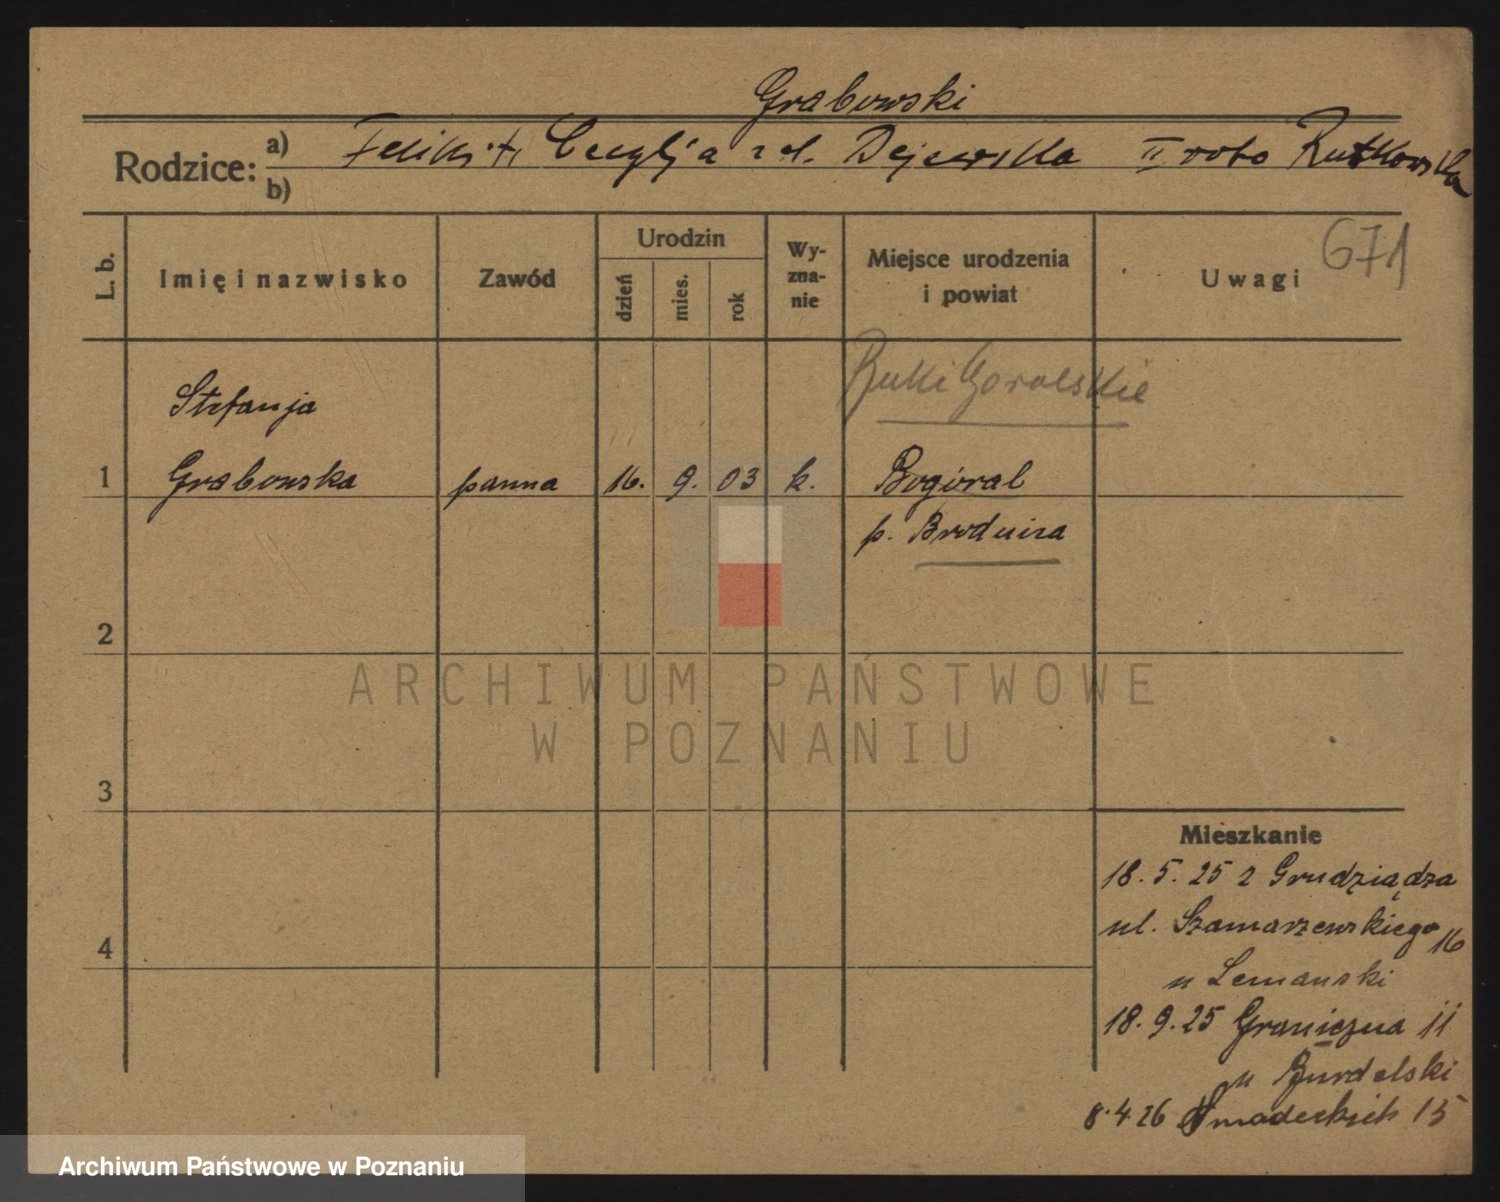 Grabowski
Rodzice: a) Feliks + Cecylja z d. Dejewska II voto Rutkowska
b)
L. b. Imię i nazwisko Zawód Urodzin dzień mies. rok Wy-zna-nie Miejsce urodzenia i powiat Uwagi 671
Ruki Goralskie
Stefanja
1 Grabowska panna 16. 9. 03 k. Bogóral
p. Brodnica
2
ARCHIWUM PAŃSTWOWE
W POZNANIU
3
Mieszkanie
18. 5. 25 z Grudziądza
ul. Szamarzewskiego 16
u Lemanski
4
18. 9. 25 Graniczna 11
u Burdelski
8. 4. 26 15
Archiwum Państwowe w Poznaniu